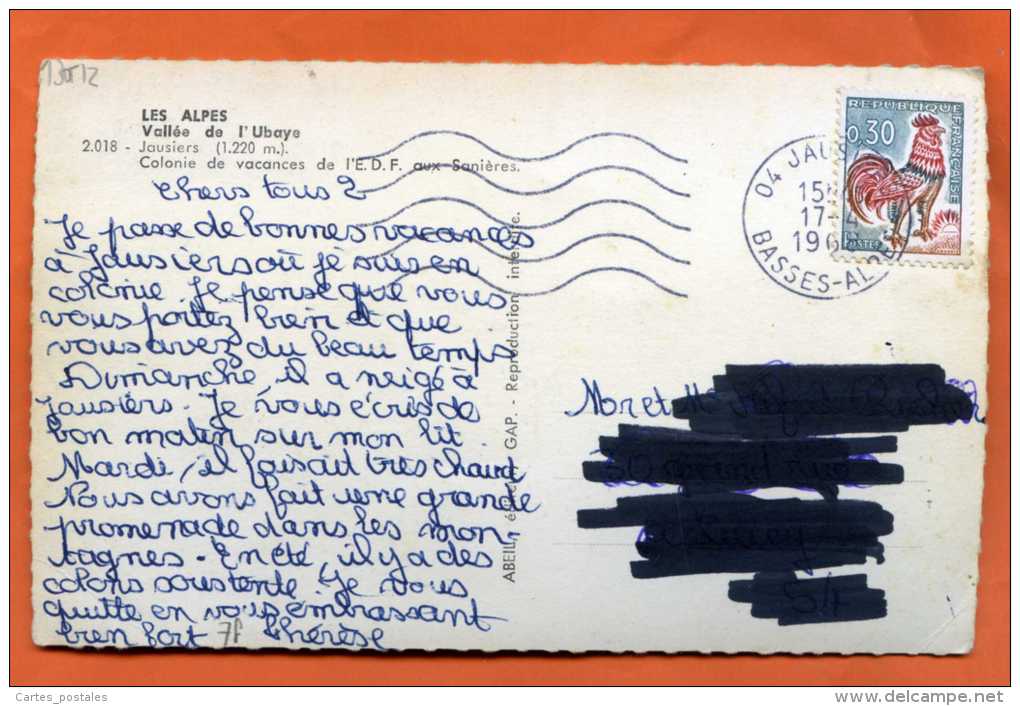 13512
LES ALPES
Vallée de l'Ubaye
2.018 - Jausiers (1.220 m.).
Colonie de vacances de l'E.D.F. aux Sanières.
chers tous 2
Je passe de bonnes vacances
à Jausiers où je suis en
colonie. Je pense que vous
vous portez bien et que
vous avez du beau temps
Dimanche, il a neigé à
Jausiers. Je vous écris de
bon matin sur mon lit.
Mardi, il faisait très chaud
Nous avons fait une grande
promenade dans les mon-
tagnes. En été, il y a des
colons sous tente. Je vous
quitte en vous embrassant
bien fort 7f Thérèse
ABEIL, éditeur GAP. - Reproduction interdite.
REPUBLIQUE FRANÇAISE
0,30
POSTES
04 JAUS
15
17
196
BASSES-ALPES
Mr et Mme
54
Cartes_postales
www.delcampe.net